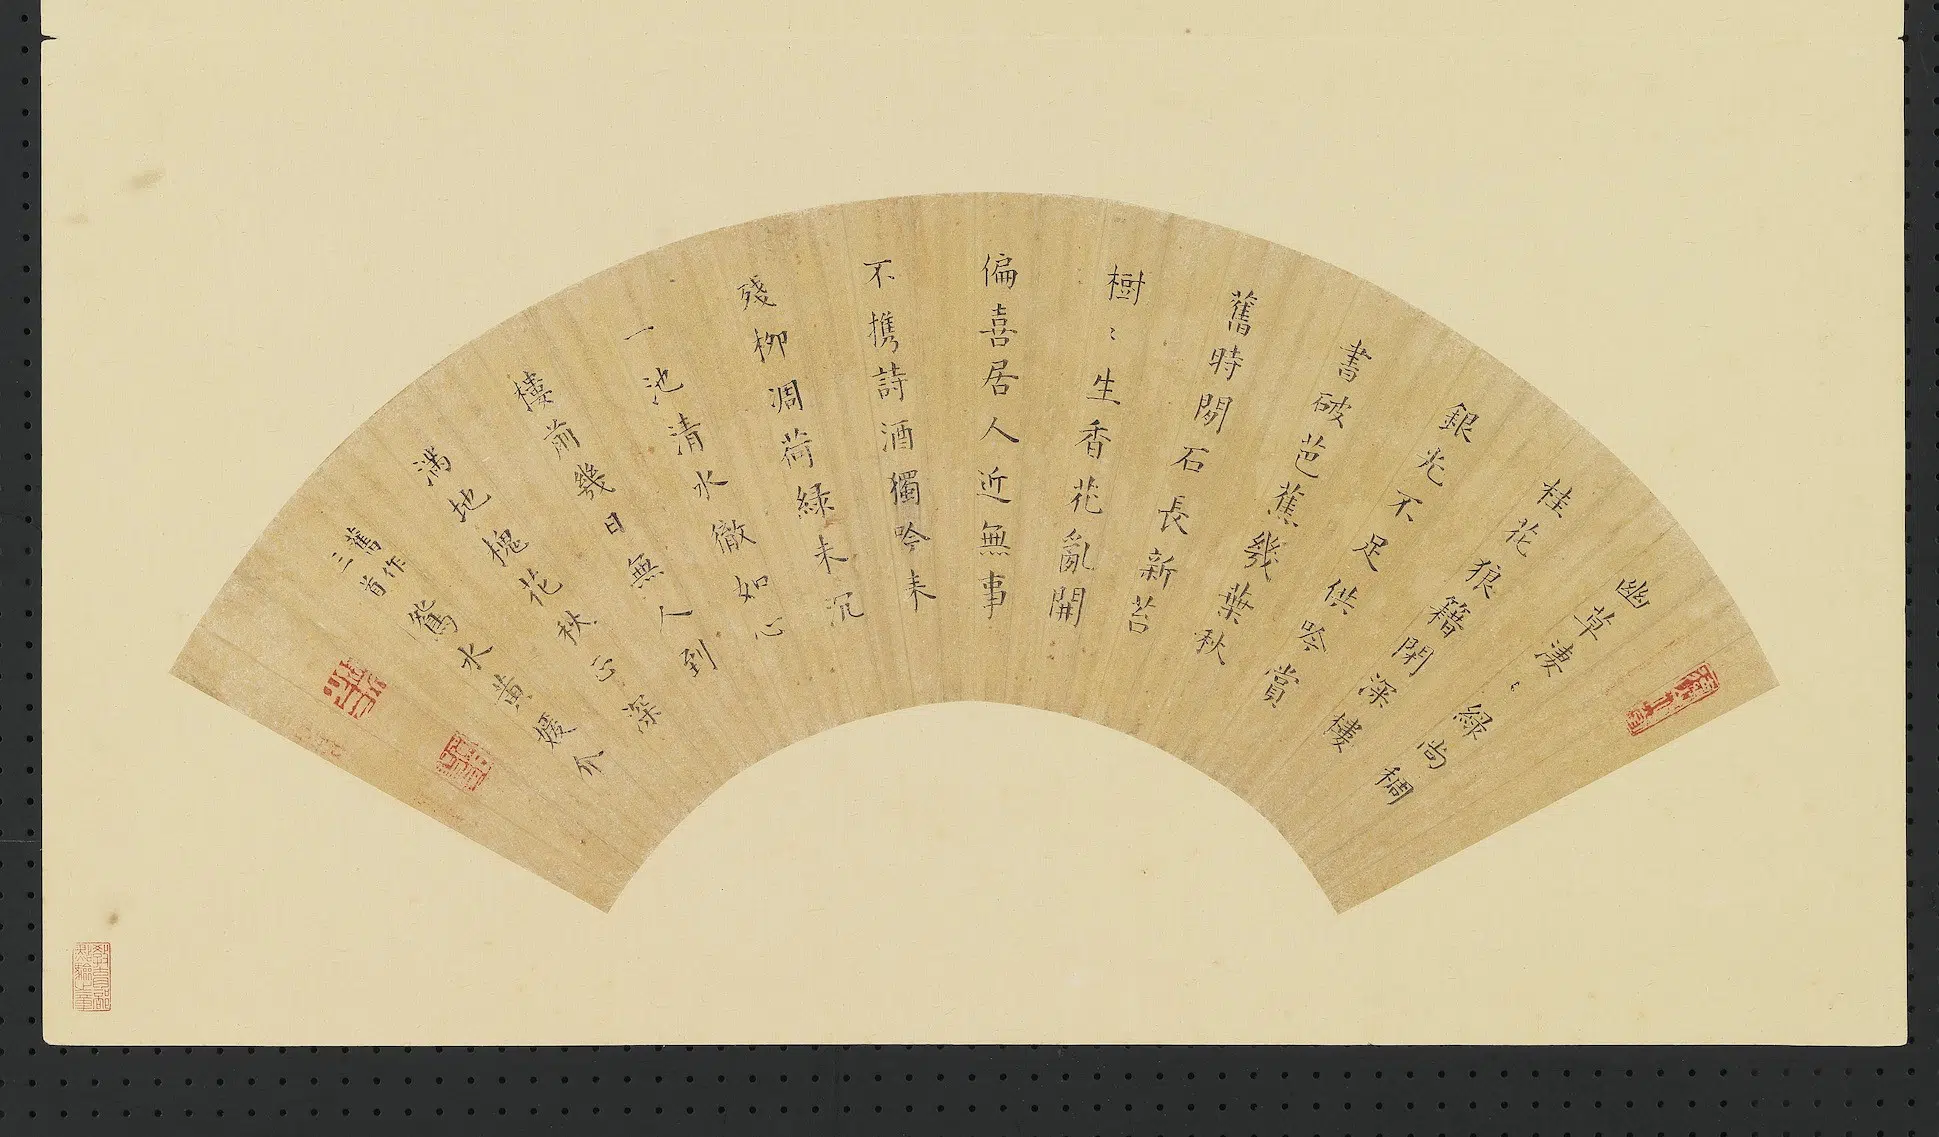 幽草淒〻綠尚稠
桂花狼籍閑深樓
銀光不足供吟賞
書破芭蕉幾葉秋
舊時閒石長新苔
樹〻生香花亂開
偏喜居人近無事
不携詩酒獨吟來
殘柳凋荷綠未沉
一池清水徹如心
樓前幾日無人到
滿地槐花秋已深
舊作
三首
鴛水黃媛介